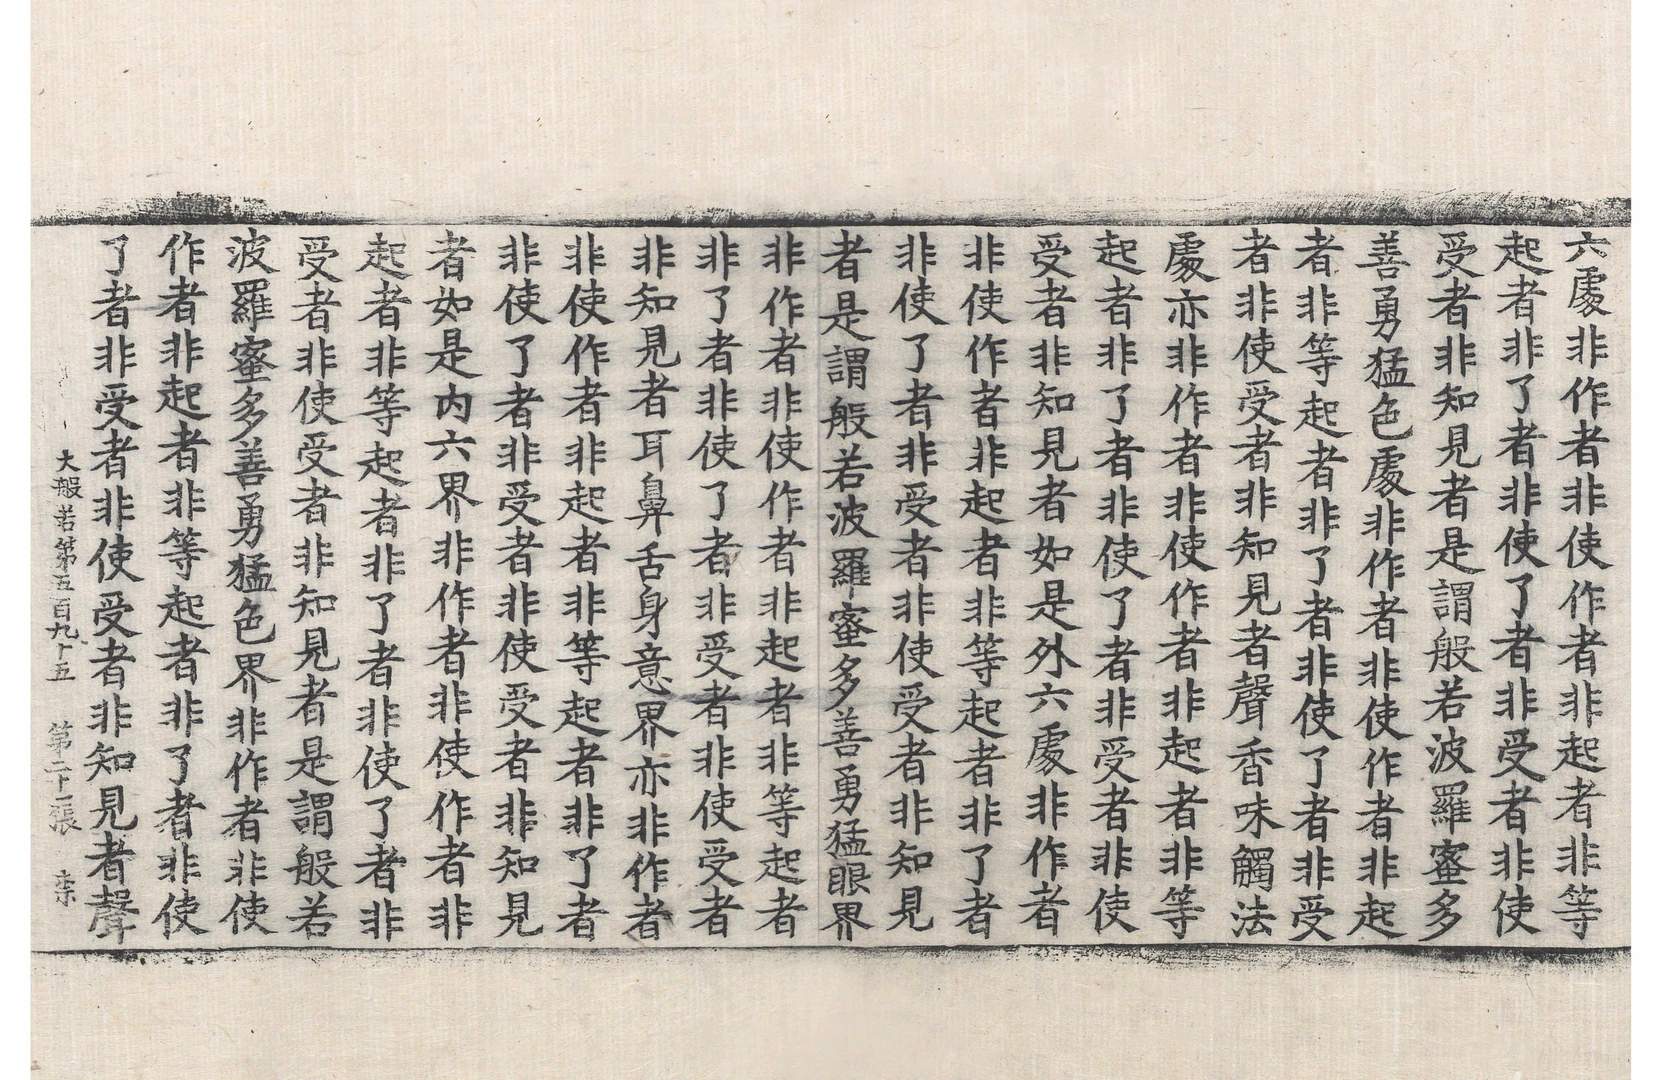 六處非作者非使作者非起者非等
起者非了者非使了者非受者非使
受者非知見者是謂般若波羅蜜多
善勇猛色處非作者非使作者非起
者非等起者非了者非使了者非受
者非使受者非知見者聲香味觸法
處亦非作者非使作者非起者非等
起者非了者非使了者非受者非使
受者非知見者如是外六處非作者
非使作者非起者非等起者非了者
非使了者非受者非使受者非知見
者是謂般若波羅蜜多善勇猛眼界
非作者非使作者非起者非等起者
非了者非使了者非受者非使受者
非知見者耳鼻舌身意界亦非作者
非使作者非起者非等起者非了者
非使了者非受者非使受者非知見
者如是内六界非作者非使作者非
起者非等起者非了者非使了者非
受者非使受者非知見者是謂般若
波羅蜜多善勇猛色界非作者非使
作者非起者非等起者非了者非使
了者非受者非使受者非知見者聲
大般若第五百九十五 第二十一張 柰